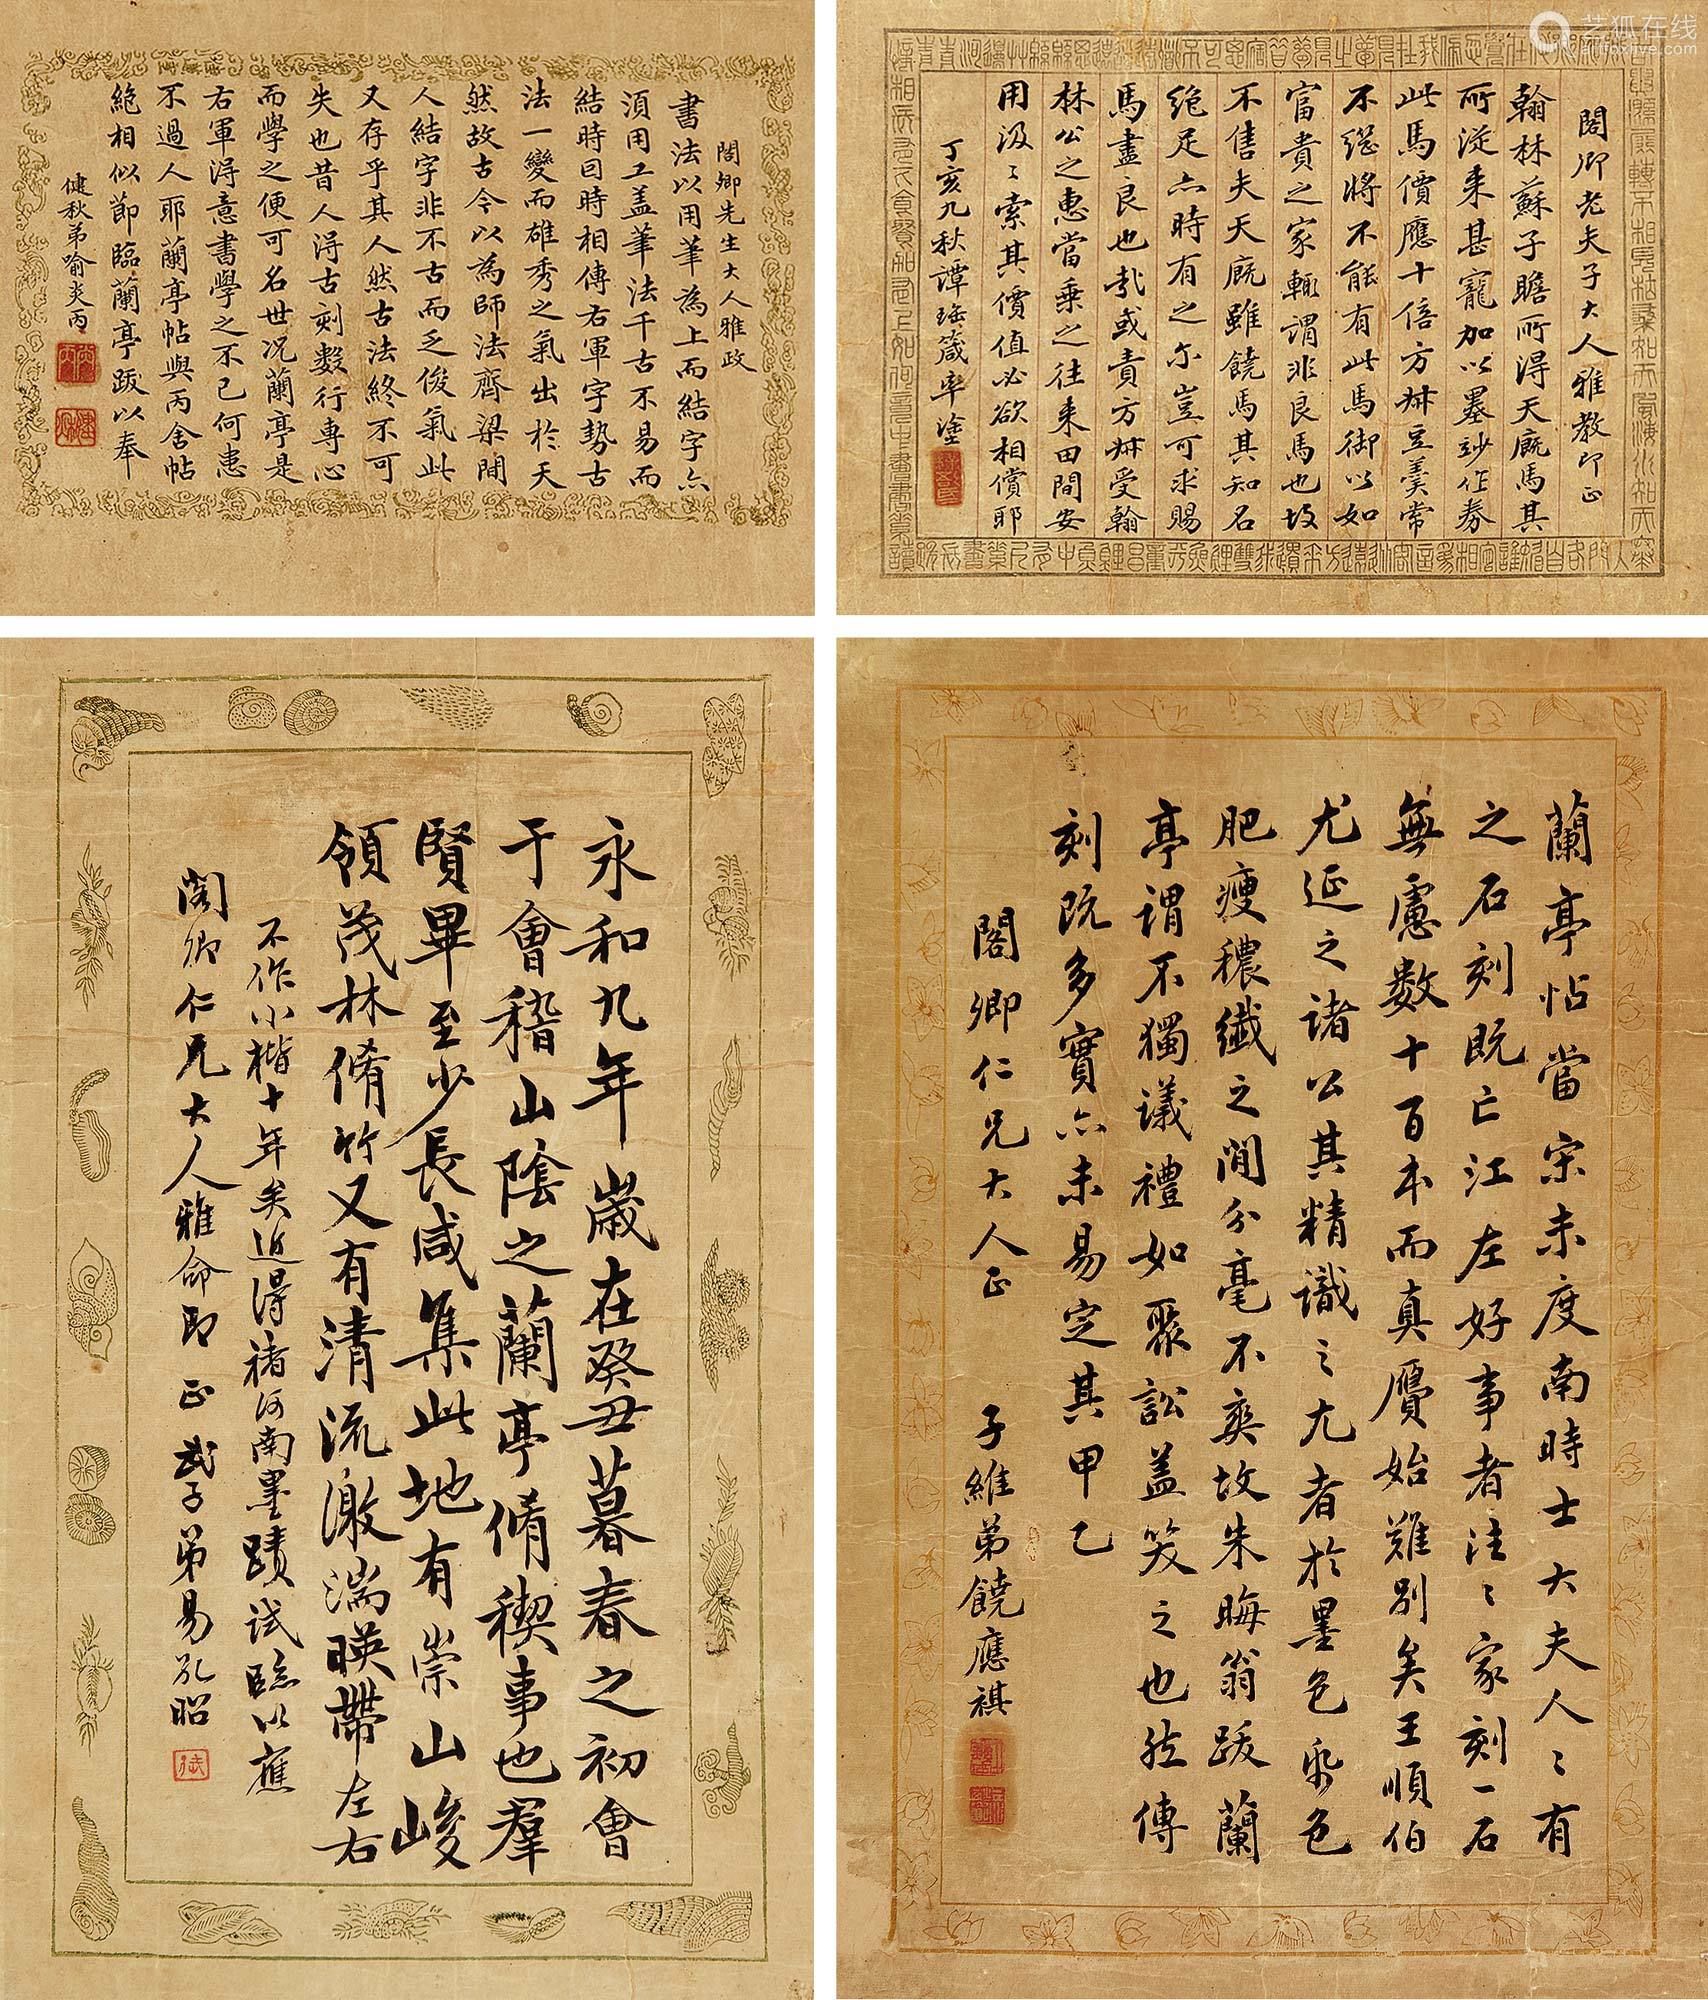 閣卿先生大人雅政
書法以用筆為上而結字亦
須用工盖筆法千古不易而
結時因時相傳右軍字勢古
法一變而雄秀之氣出於天
然故古今以為師法齊梁間
人結字非不古而乏俊氣此
又存乎其人然古法終不可
失也昔人得古刻數行專心
而學之便可名世况蘭亭是
右軍得意書學之不已何患
不過人耶蘭亭帖與丙舍帖
絕相似節臨蘭亭跋以奉
健秋弟喻炎丙
閣卿老夫子大人雅教即正
翰林蘇子瞻所得天廐馬其
所從來甚寵加以墨妙作券
此馬價應十倍方朔豆羹常
不繼將不能有此馬御以如
富貴之家輙謂非良馬也故
不售夫天廐雖饒馬其知名
絶足亦時有之尔豈可求賜
馬盡良也㢤或責方朔受翰
林公之惠當乘之往来田間安
用汲々索其價值必欲相償耶
丁亥九秋譚瑤箴率塗
永和九年歲在癸丑暮春之初會
于會稽山陰之蘭亭脩稧事也羣
賢畢至少長咸集此地有崇山峻
領茂林脩竹又有清流激湍暎帶左右
不作小楷十年矣近得褚河南墨蹟試臨以應
閣卿仁兄大人雅命即正 武子弟易孔昭
蘭亭帖當宋未度南時士大夫人々有
之石刻既亡江左好事者往々家刻一石
無慮數十百本而真贋始難别矣王順伯
尤延之諸公其精識之尤者於墨色紙色
肥瘦穠纖之間分毫不爽故朱晦翁跋蘭
亭謂不獨議禮如聚訟盖笑之也然傳
刻既多實亦未易定其甲乙
閣卿仁兄大人正 子維弟饒應祺
艺狐在线
artfoxlive.com